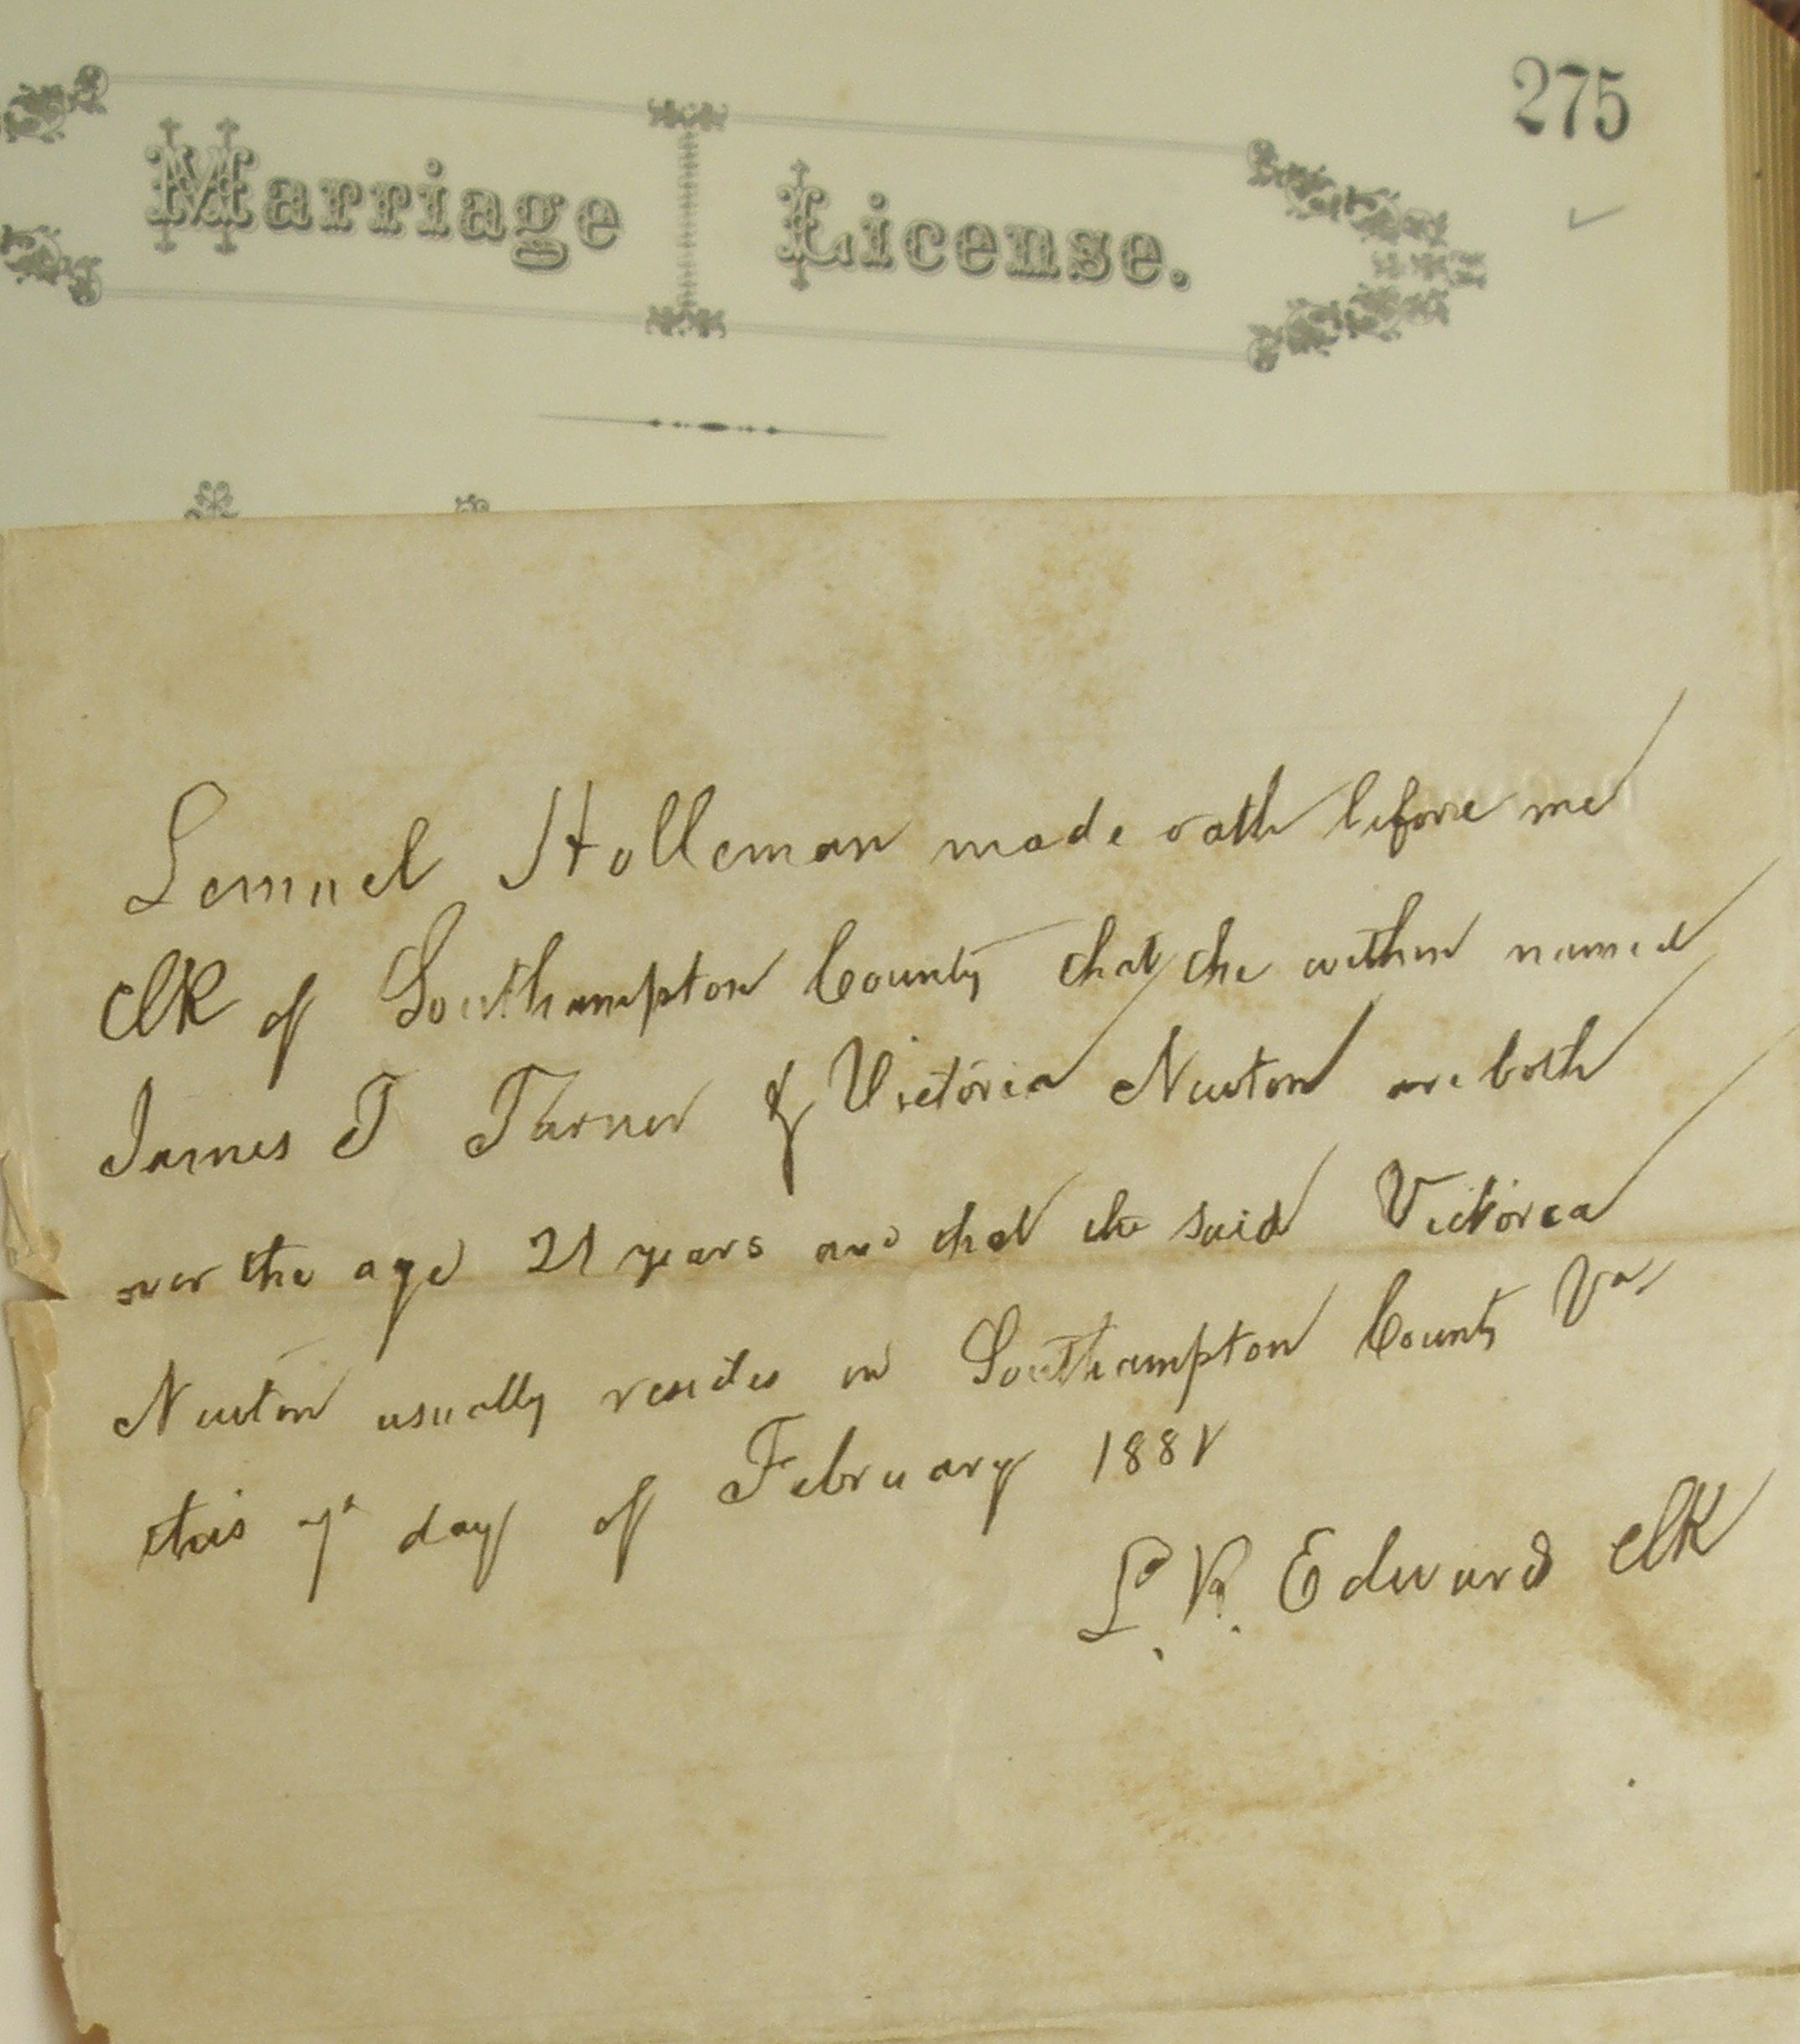 275
Marriage License.
Lemuel Holleman made oath before me
clk of Southampton County that the within named
James T Turner & Victoria Newton are both
over the age 21 years and that the said Victoria
Newton usually resides in Southampton County Va
this 7th day of February 1881
L. R. Edwards clk